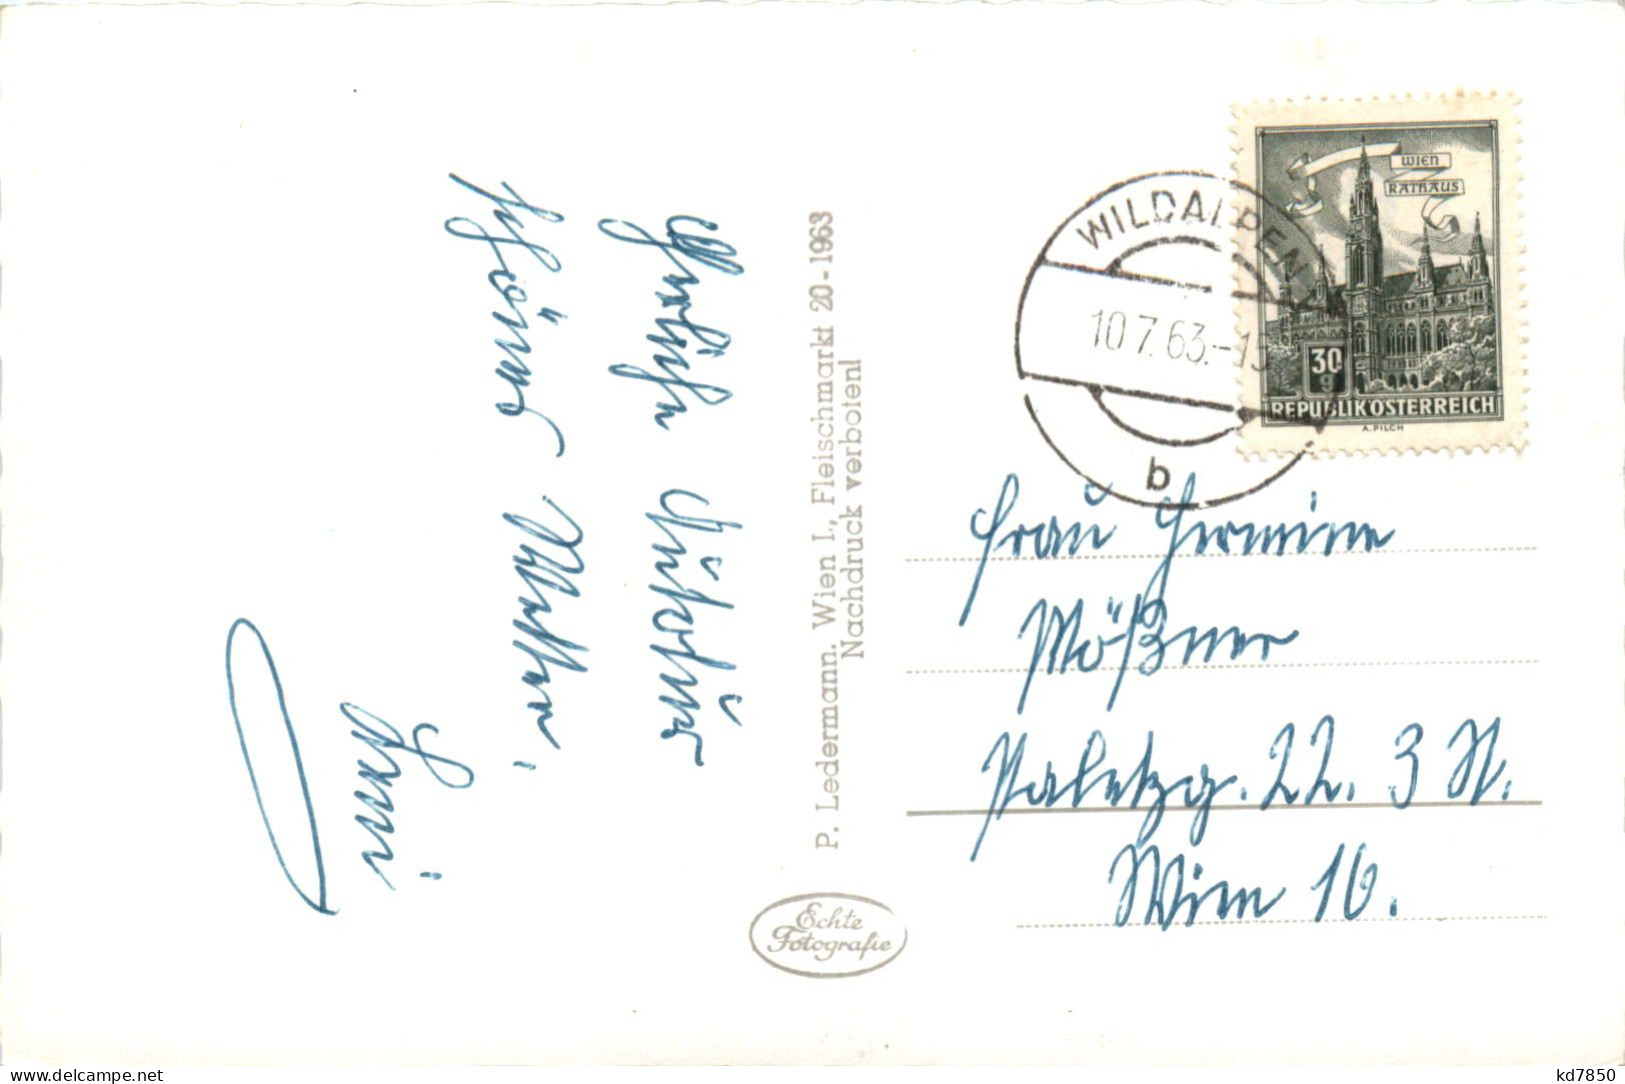 Herzliche
schönes Wetter.
Susi
P. Ledermann. Wien I., Fleischmarkt 20-1963
Nachdruck verboten!
Echte
Fotografie
WIEN
RATHAUS
30
g
REPUBLIK OSTERREICH
A. PILCH
WILDALPEN
10.7.63.-15
b
Frau Hermine
Mößner
22. 3 St.
Wien 16.
www.delcampe.net
kd7850